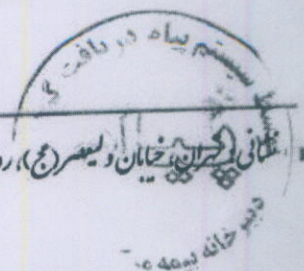 سیستم پیام دریافت
نشانی: تهران، خیابان ولیعصر (عج)، رو
دبیرخانه بیمه